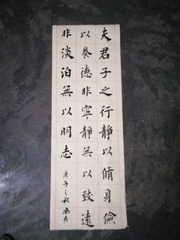 夫君子之行静以脩身儉
以養德非寧静無以致遠
非淡泊無以明志